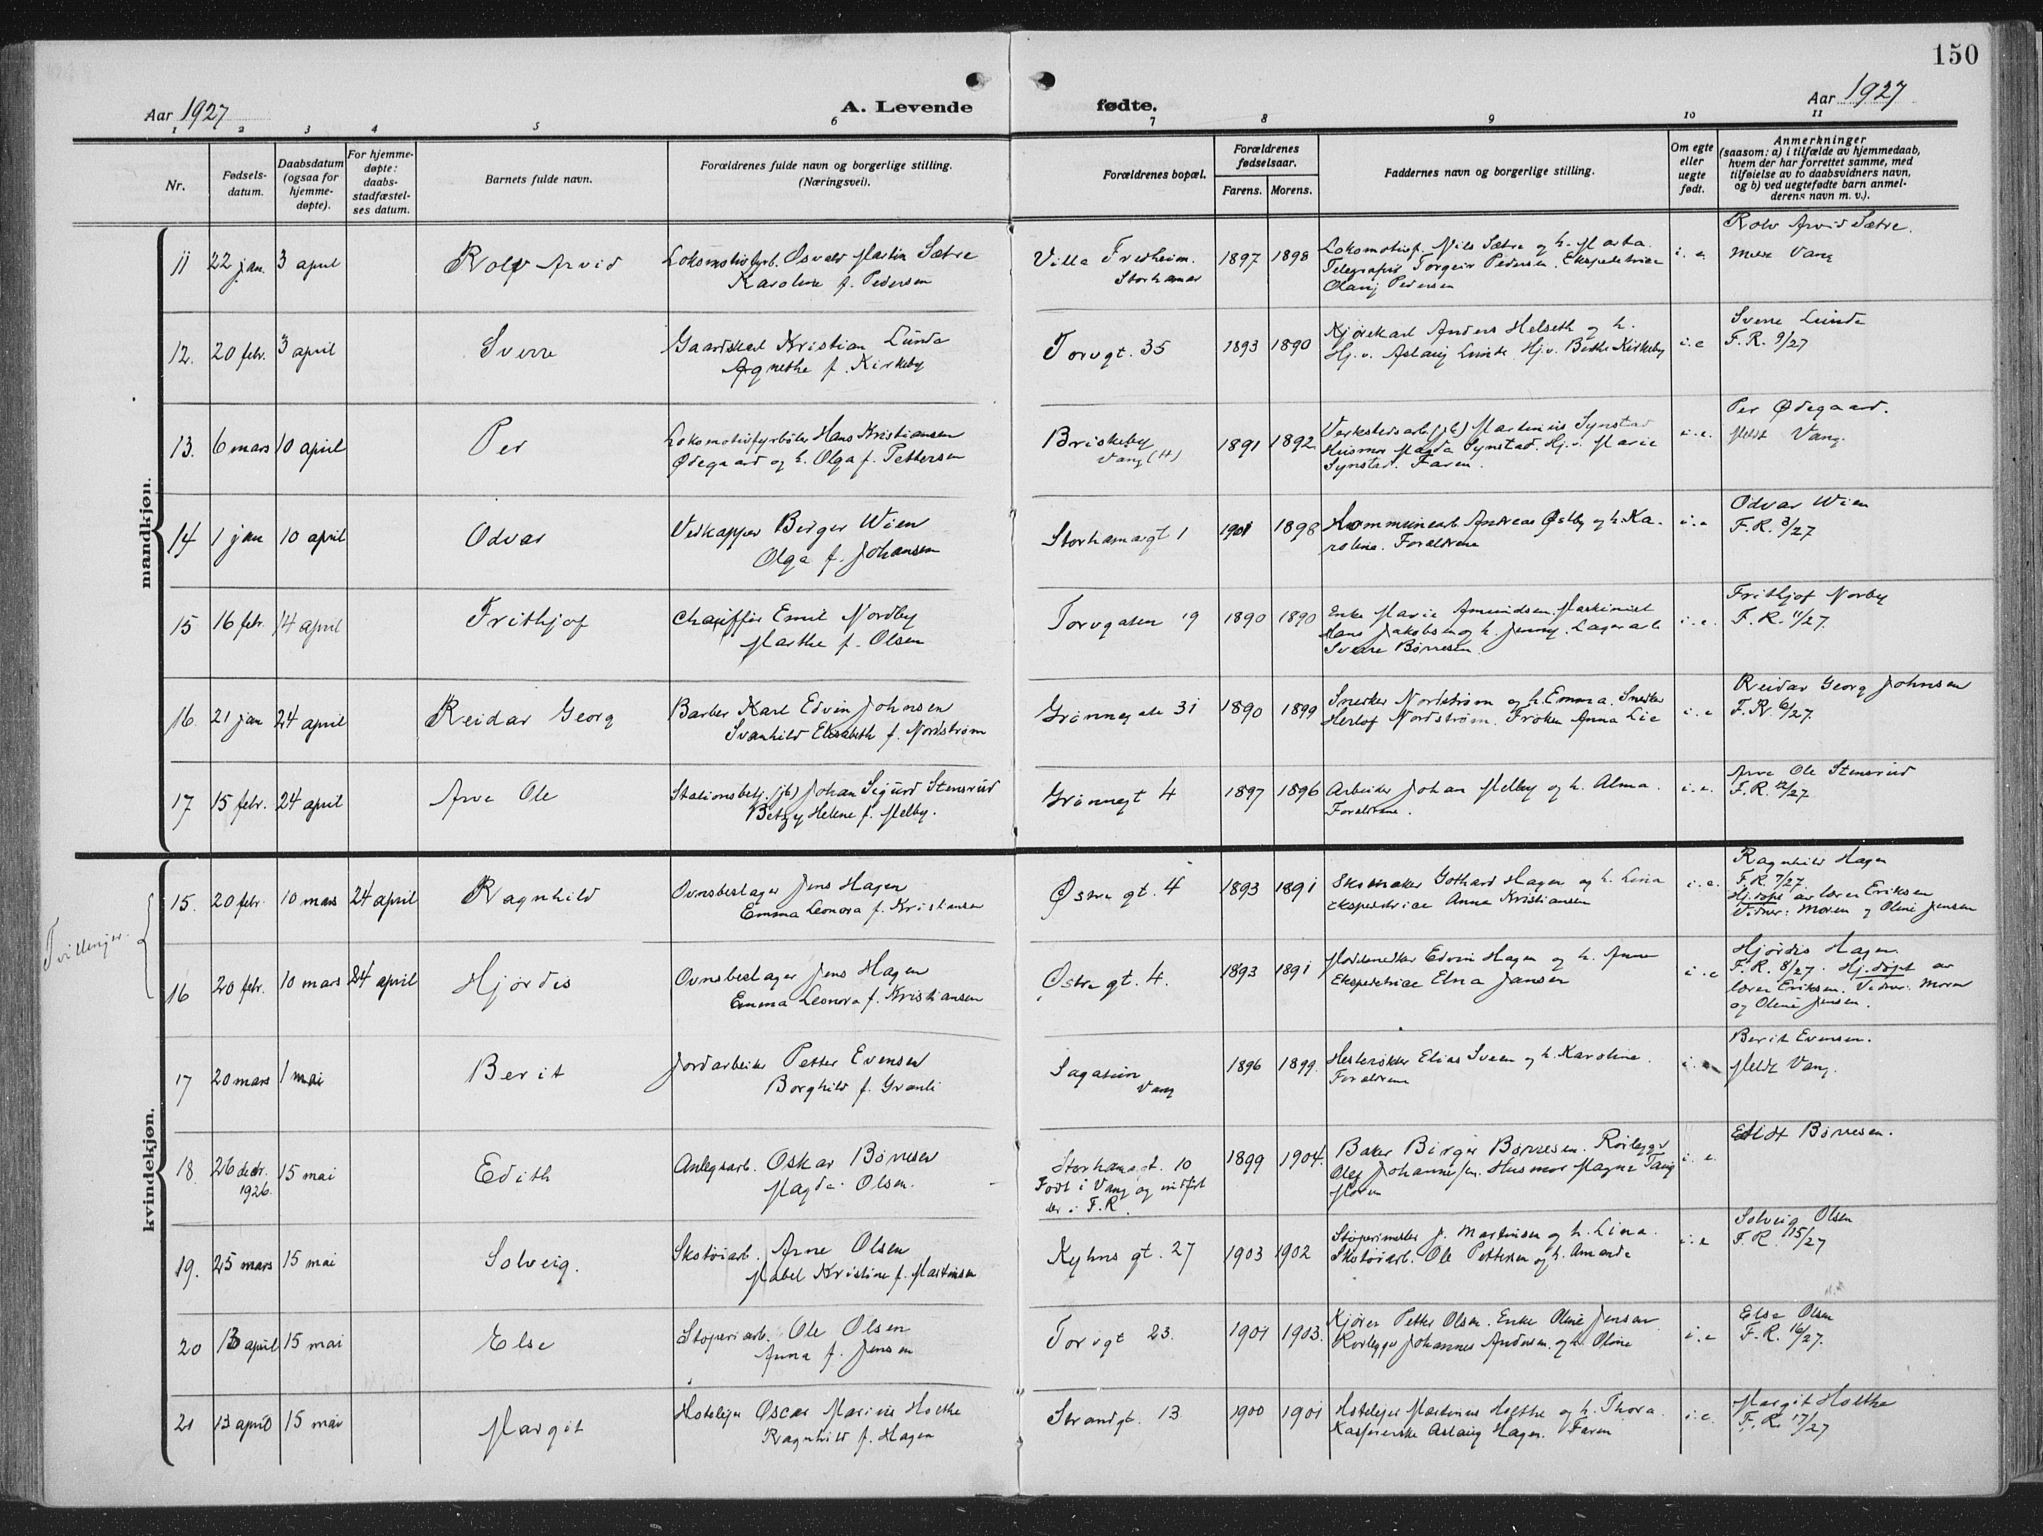 150
Aar 1927
A. Levende
fødte.
Aar 1927
1 2 3 4 5 6 7 8 9 10 11
Nr.
Fødsels-
datum.
Daabsdatum
(ogsaa for
hjemme-
døpte).
For hjemme-
døpte:
daabs-
stadfæstel-
ses datum.
Barnets fulde navn.
Forældrenes fulde navn og borgerlige stilling.
(Næringsvei).
Forældrenes bopæl.
Forældrenes
fødselsaar.
Farens. Morens.
Faddernes navn og borgerlige stilling.
Om egte
eller
uegte
født.
Anmerkninger
(saasom: a) i tilfælde av hjemmedaab,
hvem der har forrettet samme, med
tilføielse av to daabsvidners navn,
og b) ved uegtefødte barn anmel-
derens navn m. v.).
mandkjøn.
11 22 jan. 3 april Rolv Arvid
Lokomotivfyrb. Osvald Martin Sætre
Karoline f. Pedersen
Villa Fredheim.
Storhamar
1897 1898
Lokomotivf. Nils Sætre og h. Marta.
Telegrafis Torgeir Pedersen. Ekspeditrice
Olaug Pedersen
i. e.
Rolv Arvid Sætre.
Vang
12. 20 febr. 3 april Sverre
Gaardskarl Kristian Lunde
Agnethe f. Kirkeby
Torvgt. 35
1893 1890
Kjørekarl Anders Helseth og h.
Hj.v. Aslaug Lunde. Hj.v. Berthe Kirkeby
i. e
Sverre Lunde
F.R. 9/27
13. 6 mars 10 april Per
Lokomotivfyrbøter Hans Kristiansen
Ødegaard og h. Olga f. Pettersen
Briskeby
Vang (H)
1891 1892
Verkstedsarb. (jb) Martinius Synstad
Husmor Magda Synstad. Hj.v. Marie
Synstad. Faren.
i. e.
Per Ødegaard.
Meldt Vang.
14 1 jan 10 april Odvar
Vedkapper Birger Wien
Olga f. Johansen
Storhamargt 1
1901 1898
Kommunearb. Andreas Østby og h. Ka-
roline. Forældrene
i. e
Odvar Wien
F.R. 3/27
15 16 febr. 14 april Frithjof
Chauffør Emil Nordby
Marthe f. Olsen
Torvgaten 19
1890 1890
Enke Marie Amundsen. Maskinist
Hans Jakobsen og h. Jenny. Lagerarb
Sverre Børresen.
i. e.
Frithjof Norby
F.R. 11/27.
16. 21 jan 24 april Reidar Georg
Barber Karl Edvin Johnsen
Svanhild Elisabeth f. Nordstrøm
Grønnegate 31
1890 1899
Snedker Nordstrøm og h. Emma. Snedker
Herlof Nordstrøm. Frøken Anna Lie
i. e
Reidar Georg Johnsen
F.R. 6/27.
17 15 febr. 24 april Arve Ole
Stationsbetj. (jb) Johan Sigurd Stensrud
Betzy Helene f. Melby.
Grønnegt 4
1897 1896
Arbeider Johan Melby og h. Alma.
Forældrene.
i. e.
Arve Ole Stensrud
F.R. 12/27.
kvindekjøn.
Tvillinger.
15. 20 febr. 10 mars 24 april Ragnhild
Ovnsbeslager Jens Hagen
Emma Leonora f. Kristiansen
Østre gt. 4
1893 1891
Skomaker Gothard Hagen og h. Lina
Ekspeditrice Anna Kristiansen
i. e.
Ragnhild Hagen
F.R. 7/27.
Hj.døpt av lærer Eriksen
Vidner: Moren og Oline Jensen
16 20 febr. 10 mars 24 april Hjørdis
Ovnsbeslager Jens Hagen
Emma Leonora f. Kristiansen
Østre gt. 4.
1893 1891
Edvin Hagen og h. Anne
Ekspeditrice Elna Jansen
i. e
Hjørdis Hagen.
F.R. 8/27. Hj.døpt av
lærer Eriksen. Vidner. Moren
og Oline Jensen.
17 20 mars 1 mai Berit
Jordarbeider Petter Evensen
Borghild f. Granli
Sagatun
Vang
1896 1899.
Hesterøkter Elias Sveen og h. Karoline.
Forældrene
i. e
Berit Evensen.
Meldt Vang.
18. 26 decbr. 1926. 15 mai Edith
Anlegsarb. Oskar Børresen
Magda Olsen.
Storhamargt. 10
Født i Vang og indført
der i F.R.
1899 1904.
Baker Birger Børresen. Rørlegger
Olaf Johannesen. Husmor Magna Taug
Moren
i. e.
Edit Børresen.
19. 25 mars 15 mai Solveig.
Skotøiarb. Arne Olsen
Mabel Kristine f. Martinsen
Kyhns gt. 27
1903 1902
Støperimester J. Martinsen og h. Lina.
Skotøiarb. Ole Pettersen og h. Amanda
i. e
Solveig Olsen
F.R. 15/27
20 13 april 15 mai Else
Støperiarb. Ole Olsen
Anna f. Jensen
Torvgt 23.
1901 1903.
Kjører Petter Olsen. Enke Oline Jensen.
Rørlegger Johannes Andersen og h. Oline
i. e
Else Olsen
F.R. 16/27.
21 13 april 15 mai Margit
Hoteleier Oscar Marius Holthe
Ragnhild f. Hagen
Strandgt. 13
1900 1901
Hoteleier Martinus Holthe og h. Thora.
Kasserske Aslaug Hagen. Faren
i. e.
Margit Holthe
F.R. 17/27